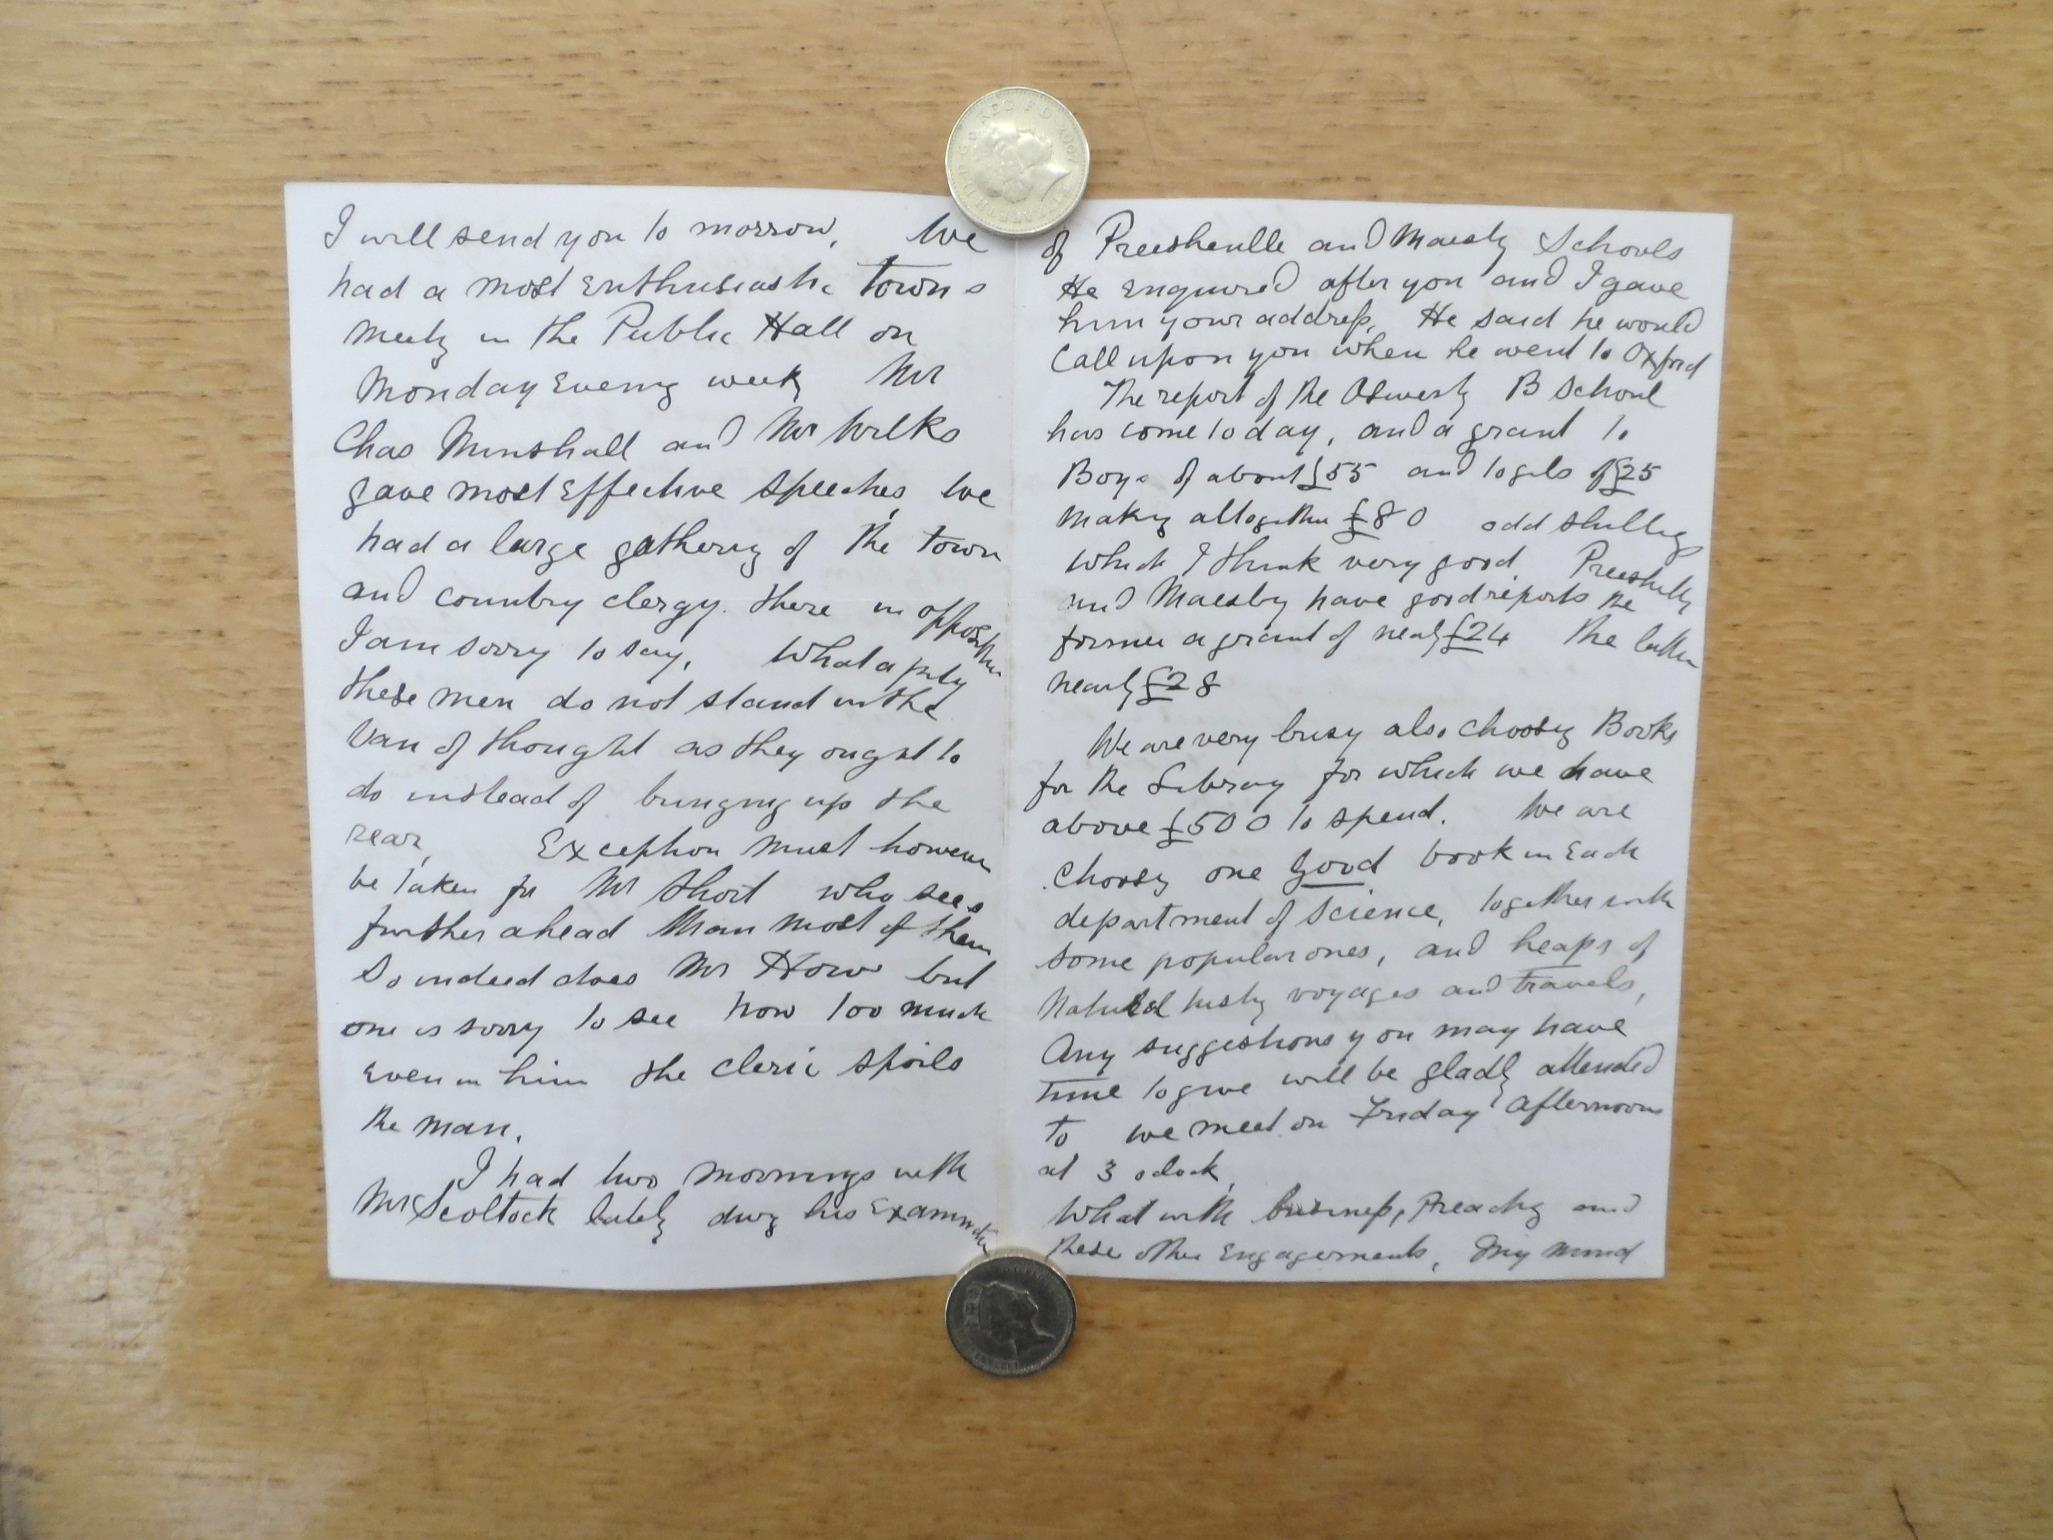 I will send you to morrow, We
had a most Enthusiastic Towns
Meetg in the Public Hall on
Monday Eveng week Mr
Chas Minshall and Mr Wilks
gave most Effective speeches, We
had a large gatherg of the town
and country clergy. there in opposition
I am sorry to say, What a pity
these men do not stand in the
Van of thought as they ought to
do instead of bringing up the
rear, Exception must however
be taken for Mr Short who sees
further ahead than most of them
So indeed does Mr How but
one is sorry to see how too much
Even in him the cleric spoils
the man.
I had two mornings with
Mr Scoltock lately durg his Examinatn
of Preeshenlle and Maesby Schools
He Enquired after you and I gave
him your address, He said he would
Call upon you when he went to Oxford
The report of the Oswesty B School
has come to day, and a grant to
Boys of about £55 and to gils of £25
Makg altogether £80 odd shillgs
which I think very good. Preeshlle
and Maesby have good reports the
former a grant of nearly £24 the latter
nearly £28
We are very busy also Choosg Books
for the Library for which we have
above £500 to spend. We are
Choosg one good book in Each
department of Science, together with
some popular ones, and heaps of
Natural histy voyages and travels,
Any suggestions you may have
time to give will be gladly attended
to we meet on Friday afternoon
at 3 oclock,
What with business, Preachg and
these other Engagements, My mind